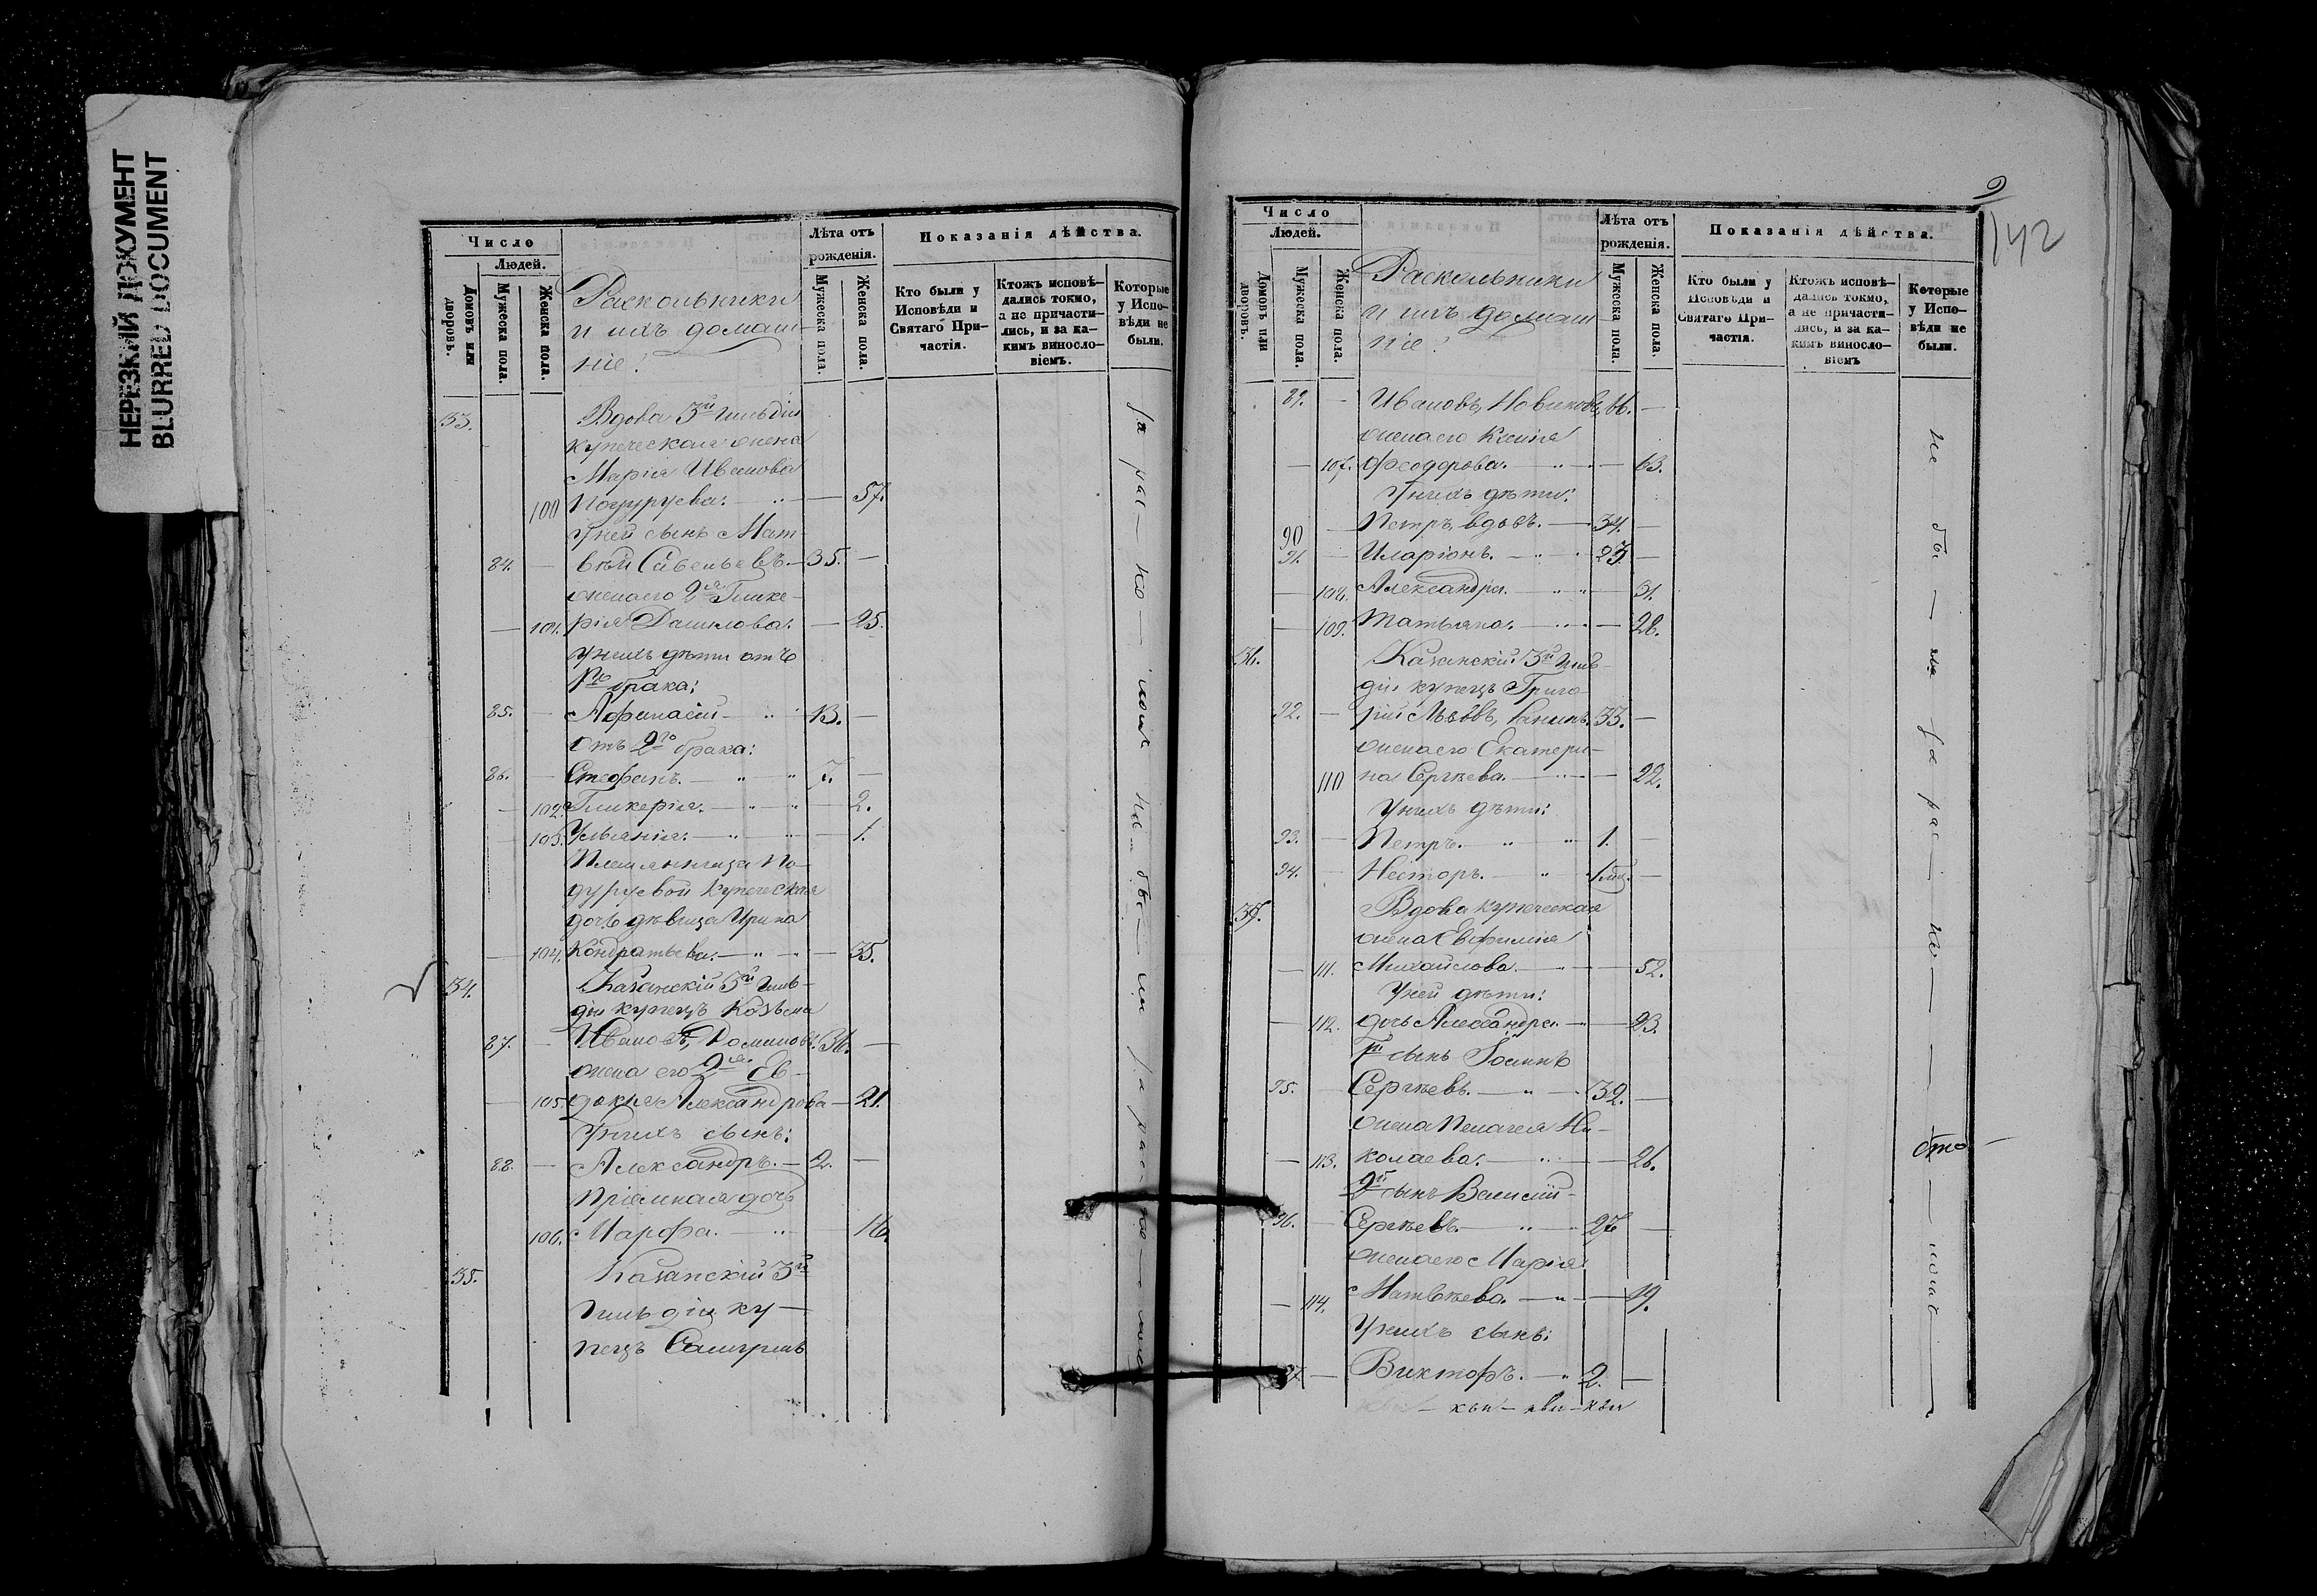 НЕРЕЗКИЙ ДОКУМЕНТ
BLURRED DOCUMENT
Число
Людей.
Домовъ или дворовъ.
Мужеска пола.
Женска пола.
Раскольники
и ихъ домаш-
ніе:
Лѣта отъ рожденія.
Мужеска пола.
Женска пола.
Показанія дѣйства.
Кто были у Исповѣди и Святаго При-частія.
Ктожъ исповѣ-дались токмо, а не причасти-лись, и за ка-кимъ винослo-віемъ.
Которые у Испо-вѣди не были.
33. Вдова 3й гильдіи
купеческая жена
Марія Иванова
100 Подуруева. — 57.
У ней сынъ Мат-
84. — вѣй Савельевъ. — 35. —
жена его 2я Глике-
— 101. рія Данилова. — 25.
У нихъ дѣти отъ
1го брака:
85. — Афанасій — 13. —
Отъ 2го брака:
86. — Стефанъ. — 7. —
— 102. Гликерія. — 2.
— 103. Ульянія. — 1.
Племянница По-
дуруевой купеческая
дочь дѣвица Ирина
— 104. Кондратьева. — 35.
34. Казанскій 3й гиль-
діи купецъ Козьма
87. — Ивановъ, Романовъ. 36. —
жена его 2я Ев-
— 105. докія Александрова — 21.
У нихъ сынъ:
88. — Александръ. — 2. —
Пріемная дочь
106. Марфа. — 16.
35. Казанскій 3й
гильдіи ку-
пецъ Сампсонъ
за рас-ко-ломъ не бы-ли
9
142
Число
Людей.
Домовъ или дворовъ.
Мужеска пола.
Женска пола.
Раскольники
и ихъ домаш-
ніе:
Лѣта отъ рожденія.
Мужеска пола.
Женска пола.
Показанія дѣйства.
Кто были у Исповѣди и Святаго При-частія.
Ктожъ исповѣ-дались токмо, а не причасти-лись, и за ка-кимъ винослo-віемъ
Которые у Испо-вѣди не были.
89. — Ивановъ, Новиковъ, 66. —
жена его Ксенія
— 107. Феодорова. — 63.
У нихъ дѣти:
90 — Петръ, вдовъ. — 34. —
91. — Иларіонъ. — 23 —
— 108. Александра. — 31.
— 109. Татьяна. — 28.
36. Казанскій 3й гиль-
діи купецъ Григо-
92. — рій Львовъ, Санинъ. 33. —
жена его Екатери-
110 на Сергѣева. — 22.
У нихъ дѣти:
93. — Петръ. — 1. —
94. — Несторъ. —
37. Вдова купеческая
жена Евфимія
— 111. Михайлова. — 52.
У ней дѣти:
— 112. дочь Александра. — 23.
1й сынъ Іоаннъ
95. — Сергѣевъ. — 32. —
жена Пелагея Ни-
— 113. колаева. — 26.
2й сынъ Василій
96. — Сергѣевъ. — 27 —
жена его Марія
— 114. Матвѣева. — 19.
У нихъ сынъ:
97 — Викторъ. — 2. —
не бы — ли за рас — ко — ломъ